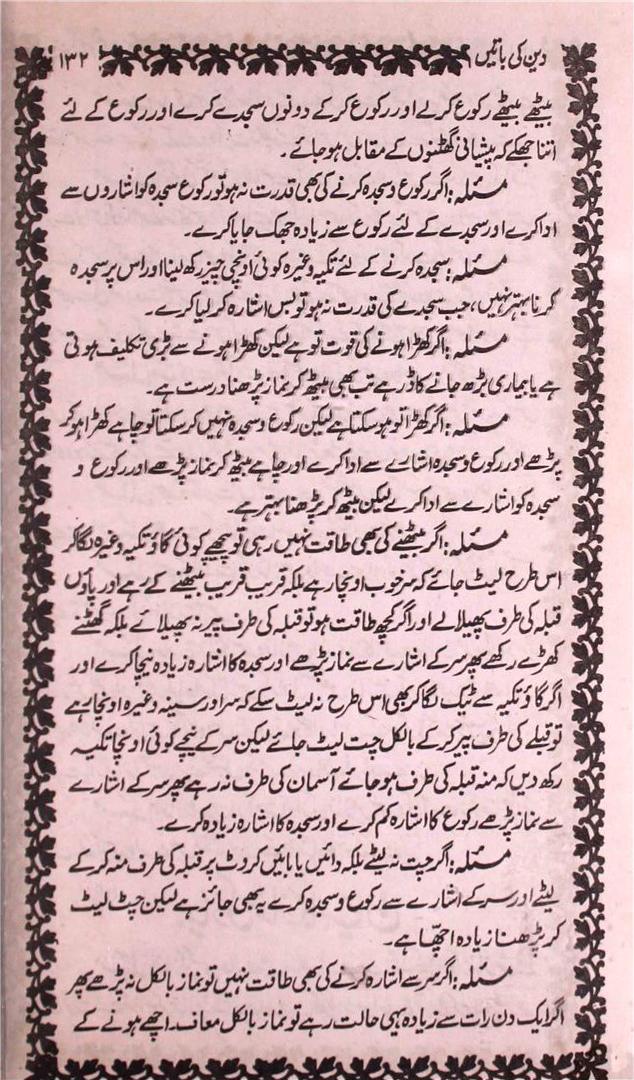 دین کی باتیں ۱۳۲
بیٹھے بیٹھے رکوع کرلے اور رکوع کرکے دونوں سجدے کرے اور رکوع کے لئے
اتنا جھکے کہ پیشانی گھٹنوں کے مقابل ہو جائے۔
مسئلہ: اگر رکوع و سجدہ کرنے کی بھی قدرت نہ ہو تو رکوع سجدہ کو اشاروں سے
ادا کرے اور سجدے کے لئے رکوع سے زیادہ جھک جایا کرے۔
مسئلہ: سجدہ کرنے کے لئے تکیہ وغیرہ کوئی اونچی چیز رکھ لینا اور اس پر سجدہ
کرنا بہتر نہیں، جب سجدے کی قدرت نہ ہو تو بس اشارہ کر لیا کرے۔
مسئلہ: اگر کھڑا ہونے کی قوت تو ہے لیکن کھڑا ہونے سے بڑی تکلیف ہوتی
ہے یا بیماری بڑھ جانے کا ڈر ہے تب بھی بیٹھ کر نماز پڑھنا درست ہے۔
مسئلہ: اگر کھڑا تو ہو سکتا ہے لیکن رکوع و سجدہ نہیں کر سکتا تو چاہے کھڑا ہو کر
پڑھے اور رکوع و سجدہ اشارے سے ادا کرے اور چاہے بیٹھ کر نماز پڑھے اور رکوع و
سجدہ کو اشارے سے ادا کرے لیکن بیٹھ کر پڑھنا بہتر ہے۔
مسئلہ: اگر بیٹھنے کی بھی طاقت نہیں رہی تو پیچھے کوئی گاؤ تکیہ وغیرہ لگا کر
اس طرح لیٹ جائے کہ سر خوب اونچا رہے بلکہ قریب قریب بیٹھنے کے رہے اور پاؤں
قبلہ کی طرف پھیلا لے اور اگر کچھ طاقت ہو تو قبلہ کی طرف پیر نہ پھیلائے بلکہ گھٹنے
کھڑے رکھے پھر سر کے اشارے سے نماز پڑھے اور سجدہ کا اشارہ زیادہ نیچا کرے اور
اگر گاؤ تکیہ سے ٹیک لگا کر بھی اس طرح نہ لیٹ سکے کہ سر اور سینہ وغیرہ اونچا رہے
تو قبلے کی طرف پیر کرکے بالکل چت لیٹ جائے لیکن سر کے نیچے کوئی اونچا تکیہ
رکھ دیں کہ منہ قبلہ کی طرف ہو جائے آسمان کی طرف نہ رہے پھر سر کے اشارے
سے نماز پڑھے رکوع کا اشارہ کم کرے اور سجدہ کا اشارہ زیادہ کرے۔
مسئلہ: اگر چت نہ لیٹے بلکہ دائیں یا بائیں کروٹ پر قبلہ کی طرف منہ کرکے
لیٹے اور سر کے اشارے سے رکوع و سجدہ کرے یہ بھی جائز ہے لیکن چٹ لیٹ
کر پڑھنا زیادہ اچھا ہے۔
مسئلہ: اگر سر سے اشارہ کرنے کی بھی طاقت نہیں تو نماز بالکل نہ پڑھے پھر
اگر ایک دن رات سے زیادہ یہی حالت رہے تو نماز بالکل معاف۔ اچھے ہونے کے